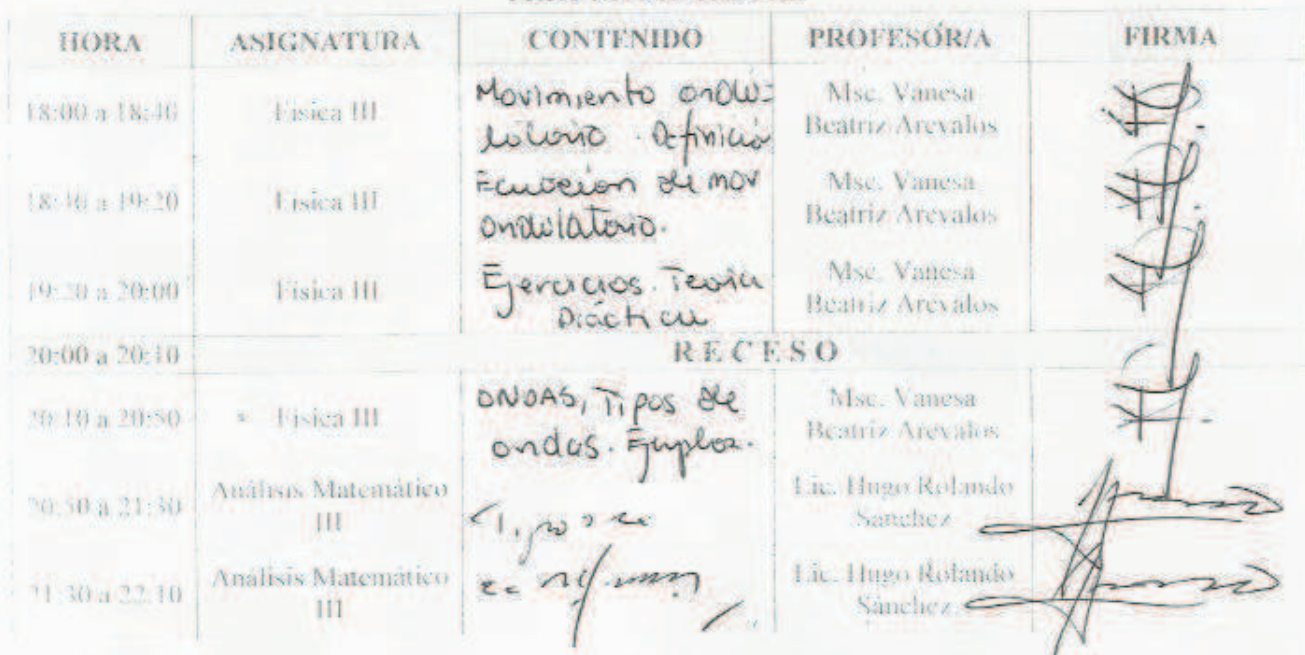 HORA ASIGNATURA CONTENIDO PROFESOR/A FIRMA
18:00 a 18:40 Fisica III Movimiento ondu- Msc. Vanesa
latorio. Definición Beatriz Arevalos
18:40 a 19:20 Fisica III Ecuación de mov Msc. Vanesa
ondulatorio. Beatriz Arevalos
19:20 a 20:00 Fisica III Ejercicios. Teoria Msc. Vanesa
Beatriz Arevalos
20:00 a 20:10 RECESO
20:10 a 20:50 Fisica III ONDAS, Tipos de Msc. Vanesa
ondas. Beatriz Arevalos
20:50 a 21:30 Análisis Matemático Lic. Hugo Rolando
III Sanchez
21:30 a 22:10 Análisis Matemático Lic. Hugo Rolando
III Sanchez